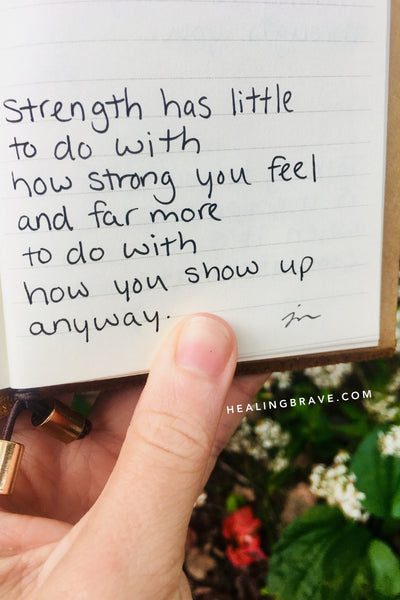 strength has little
to do with
how strong you feel
and far more
to do with
how you show up
anyway.
HEALINGBRAVE.COM